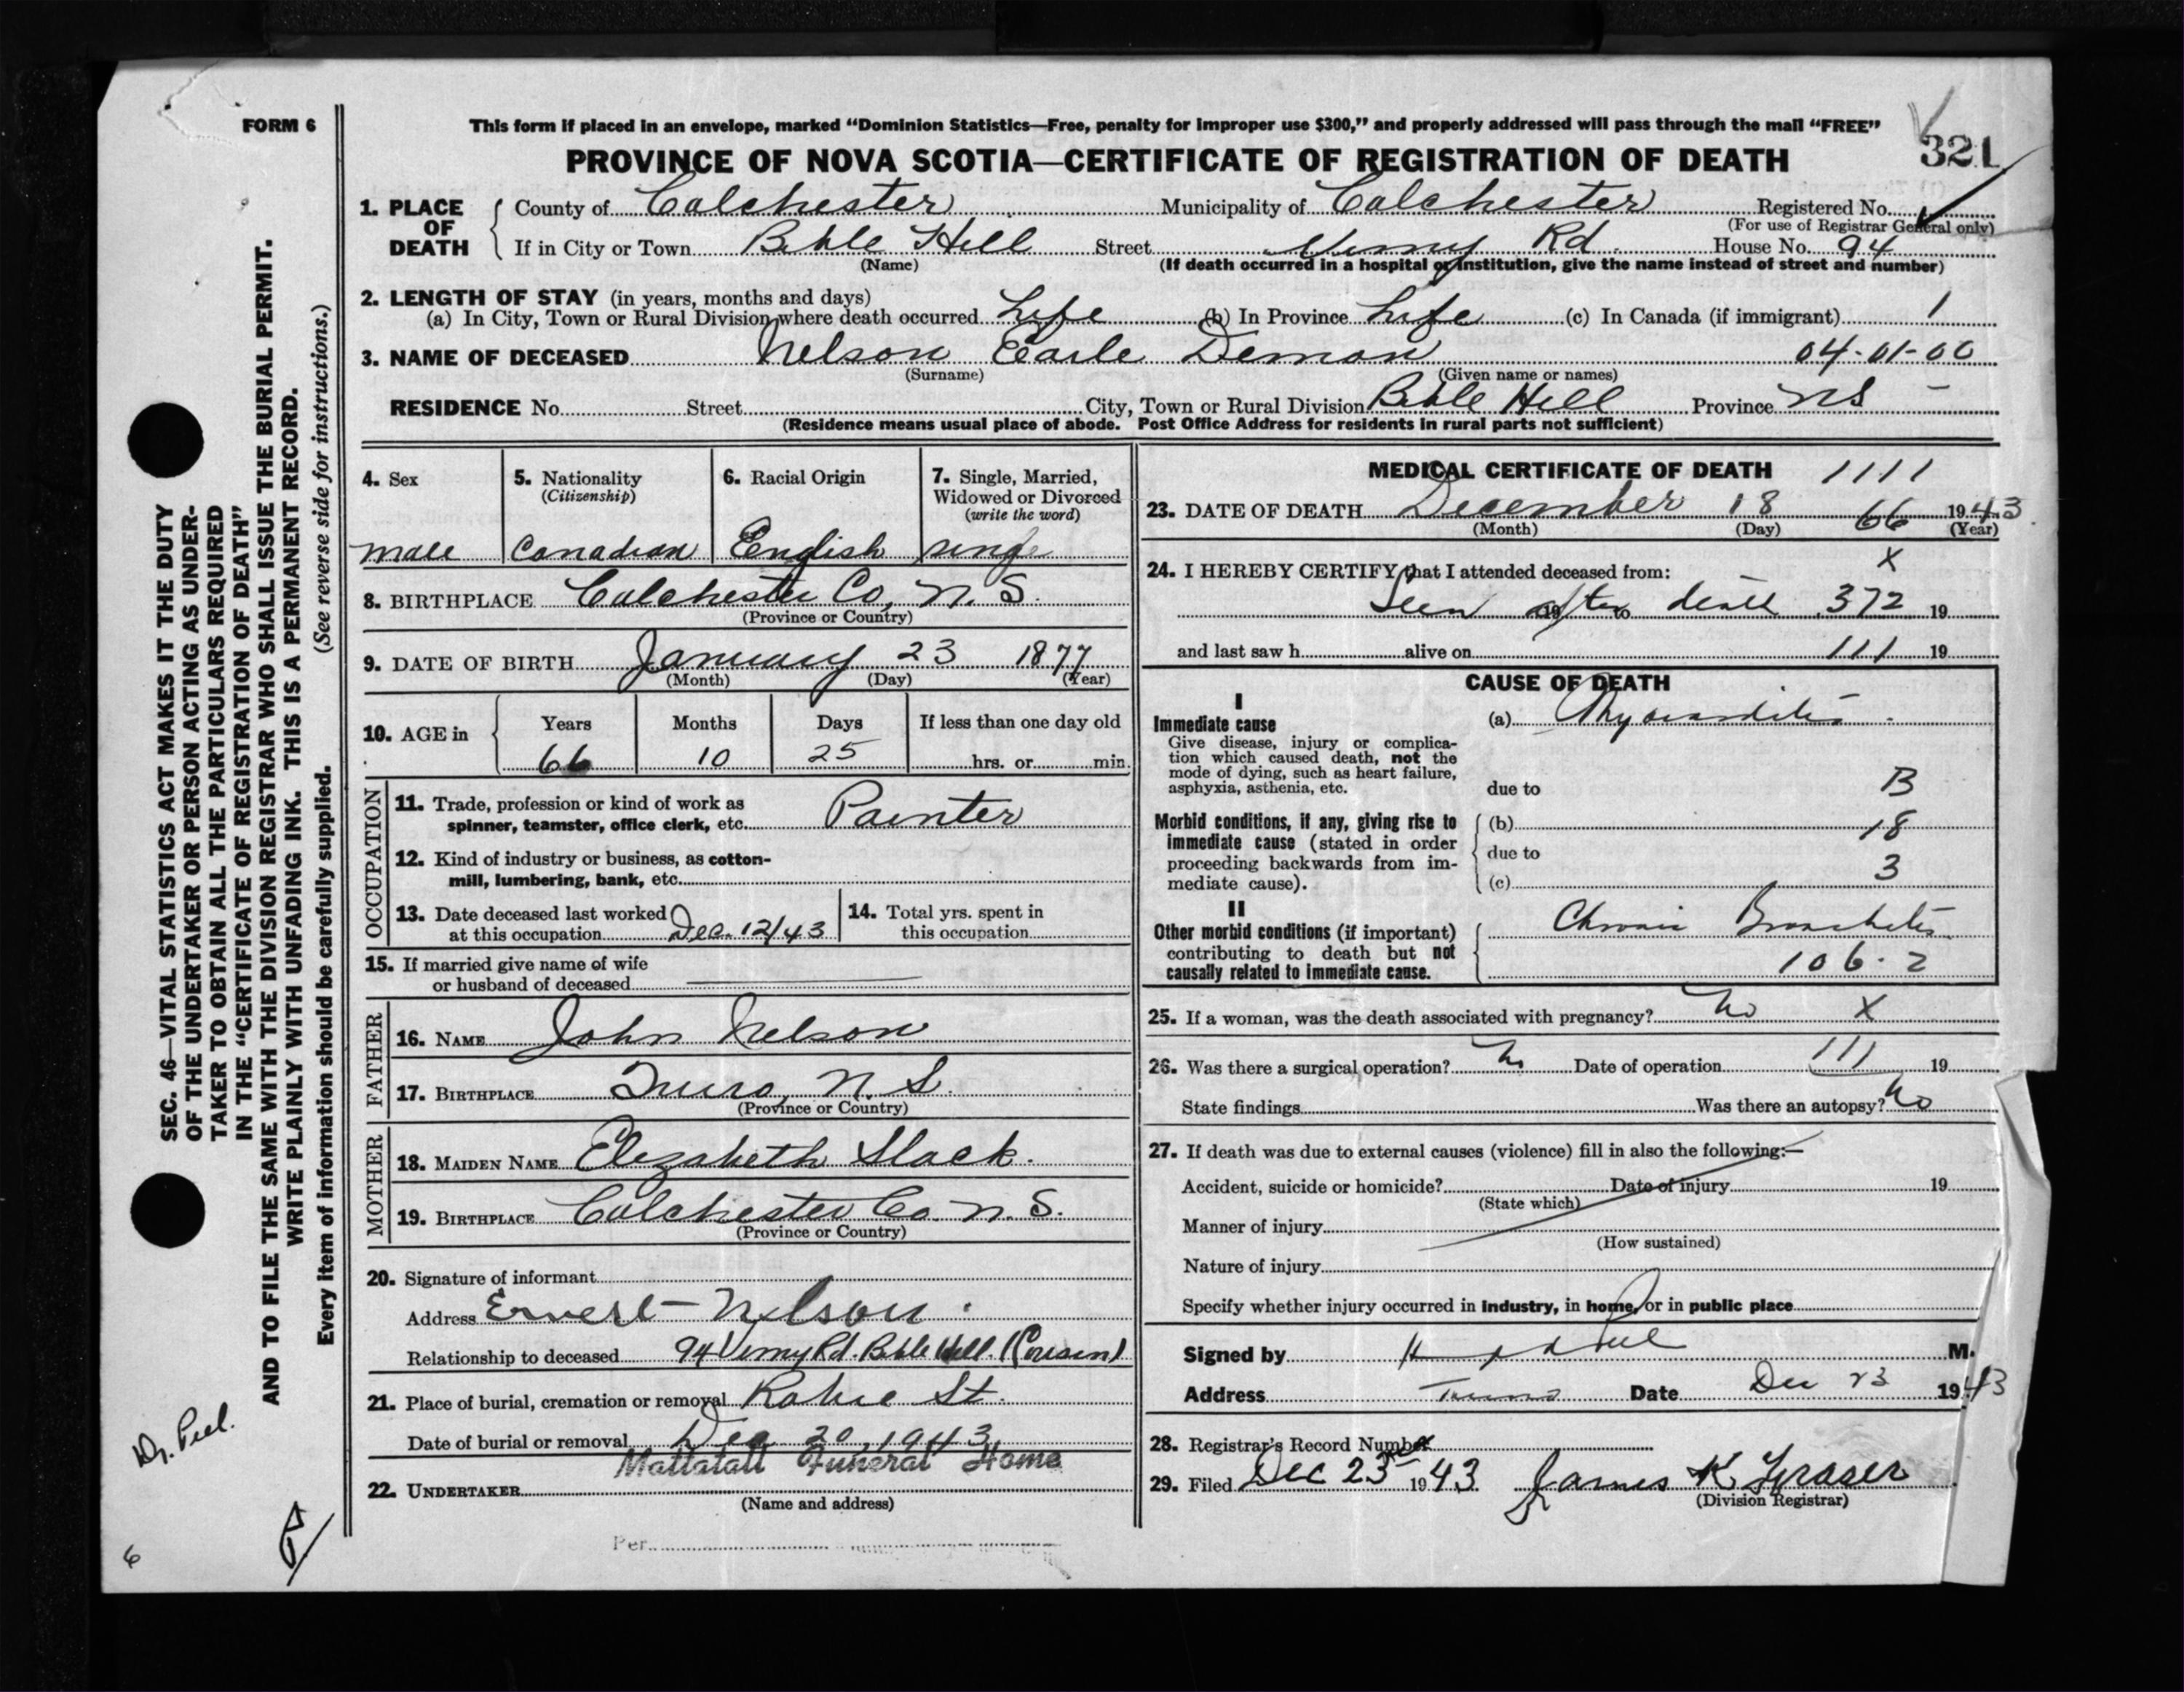 FORM 6
This form if placed in an envelope, marked "Dominion Statistics—Free, penalty for improper use $300," and properly addressed will pass through the mail "FREE"
PROVINCE OF NOVA SCOTIA—CERTIFICATE OF REGISTRATION OF DEATH
321
1. PLACE OF DEATH
County of Colchester Municipality of Colchester Registered No.
(For use of Registrar General only)
If in City or Town Bible Hill Street Vimy Rd. House No. 94
(Name) (If death occurred in a hospital or institution, give the name instead of street and number)
2. LENGTH OF STAY (in years, months and days)
(a) In City, Town or Rural Division where death occurred Life (b) In Province Life (c) In Canada (if immigrant) 1
3. NAME OF DECEASED Nelson Earle Demon 04-01-00
(Surname) (Given name or names)
RESIDENCE No. Street City, Town or Rural Division Bible Hill Province NS
(Residence means usual place of abode. Post Office Address for residents in rural parts not sufficient)
4. Sex
male
5. Nationality
(Citizenship)
Canadian
6. Racial Origin
English
7. Single, Married,
Widowed or Divorced
(write the word)
single
8. BIRTHPLACE Colchester Co, N. S.
(Province or Country)
9. DATE OF BIRTH January 23 1877
(Month) (Day) (Year)
10. AGE in
Years Months Days If less than one day old
66 10 25 hrs. or min.
OCCUPATION
11. Trade, profession or kind of work as
spinner, teamster, office clerk, etc. Painter
12. Kind of industry or business, as cotton-
mill, lumbering, bank, etc.
13. Date deceased last worked
at this occupation Dec. 12/43
14. Total yrs. spent in
this occupation
15. If married give name of wife
or husband of deceased
FATHER
16. NAME John Nelson
17. BIRTHPLACE Truro, N. S.
(Province or Country)
MOTHER
18. MAIDEN NAME Elizabeth Slack.
19. BIRTHPLACE Colchester Co. N. S.
(Province or Country)
20. Signature of informant
Address Ernest Nelson.
Relationship to deceased 94 Vimy Rd. Bible Hill. (Cousin)
21. Place of burial, cremation or removal Robie St.
Date of burial or removal Dec 20, 1943
Mattatall Funeral Home
22. UNDERTAKER
(Name and address)
Per
MEDICAL CERTIFICATE OF DEATH 1111
23. DATE OF DEATH December 18 66 1943
(Month) (Day) (Year)
x
24. I HEREBY CERTIFY that I attended deceased from:
Seen after death 372 19
and last saw h alive on 111 19
CAUSE OF DEATH
I
Immediate cause (a) Myocarditis.
Give disease, injury or complica-
tion which caused death, not the
mode of dying, such as heart failure,
asphyxia, asthenia, etc. due to B
Morbid conditions, if any, giving rise to
immediate cause (stated in order
proceeding backwards from im-
mediate cause).
(b) 18
due to
(c) 3
II
Other morbid conditions (if important)
contributing to death but not
causally related to immediate cause.
Chronic Bronchitis
106.2
25. If a woman, was the death associated with pregnancy? No X
26. Was there a surgical operation? No Date of operation 111 19
State findings Was there an autopsy? No
27. If death was due to external causes (violence) fill in also the following:—
Accident, suicide or homicide? Date of injury 19
(State which)
Manner of injury
(How sustained)
Nature of injury
Specify whether injury occurred in industry, in home, or in public place
Signed by Peel M.
Address Truro Date Dec 23 1943
28. Registrar's Record Number
29. Filed Dec 23rd 1943 James K Fraser
(Division Registrar)
SEC. 46—VITAL STATISTICS ACT MAKES IT THE DUTY
OF THE UNDERTAKER OR PERSON ACTING AS UNDER-
TAKER TO OBTAIN ALL THE PARTICULARS REQUIRED
IN THE "CERTIFICATE OF REGISTRATION OF DEATH"
AND TO FILE THE SAME WITH THE DIVISION REGISTRAR WHO SHALL ISSUE THE BURIAL PERMIT.
WRITE PLAINLY WITH UNFADING INK. THIS IS A PERMANENT RECORD.
Every item of information should be carefully supplied. (See reverse side for instructions.)
Dr. Peel.
6